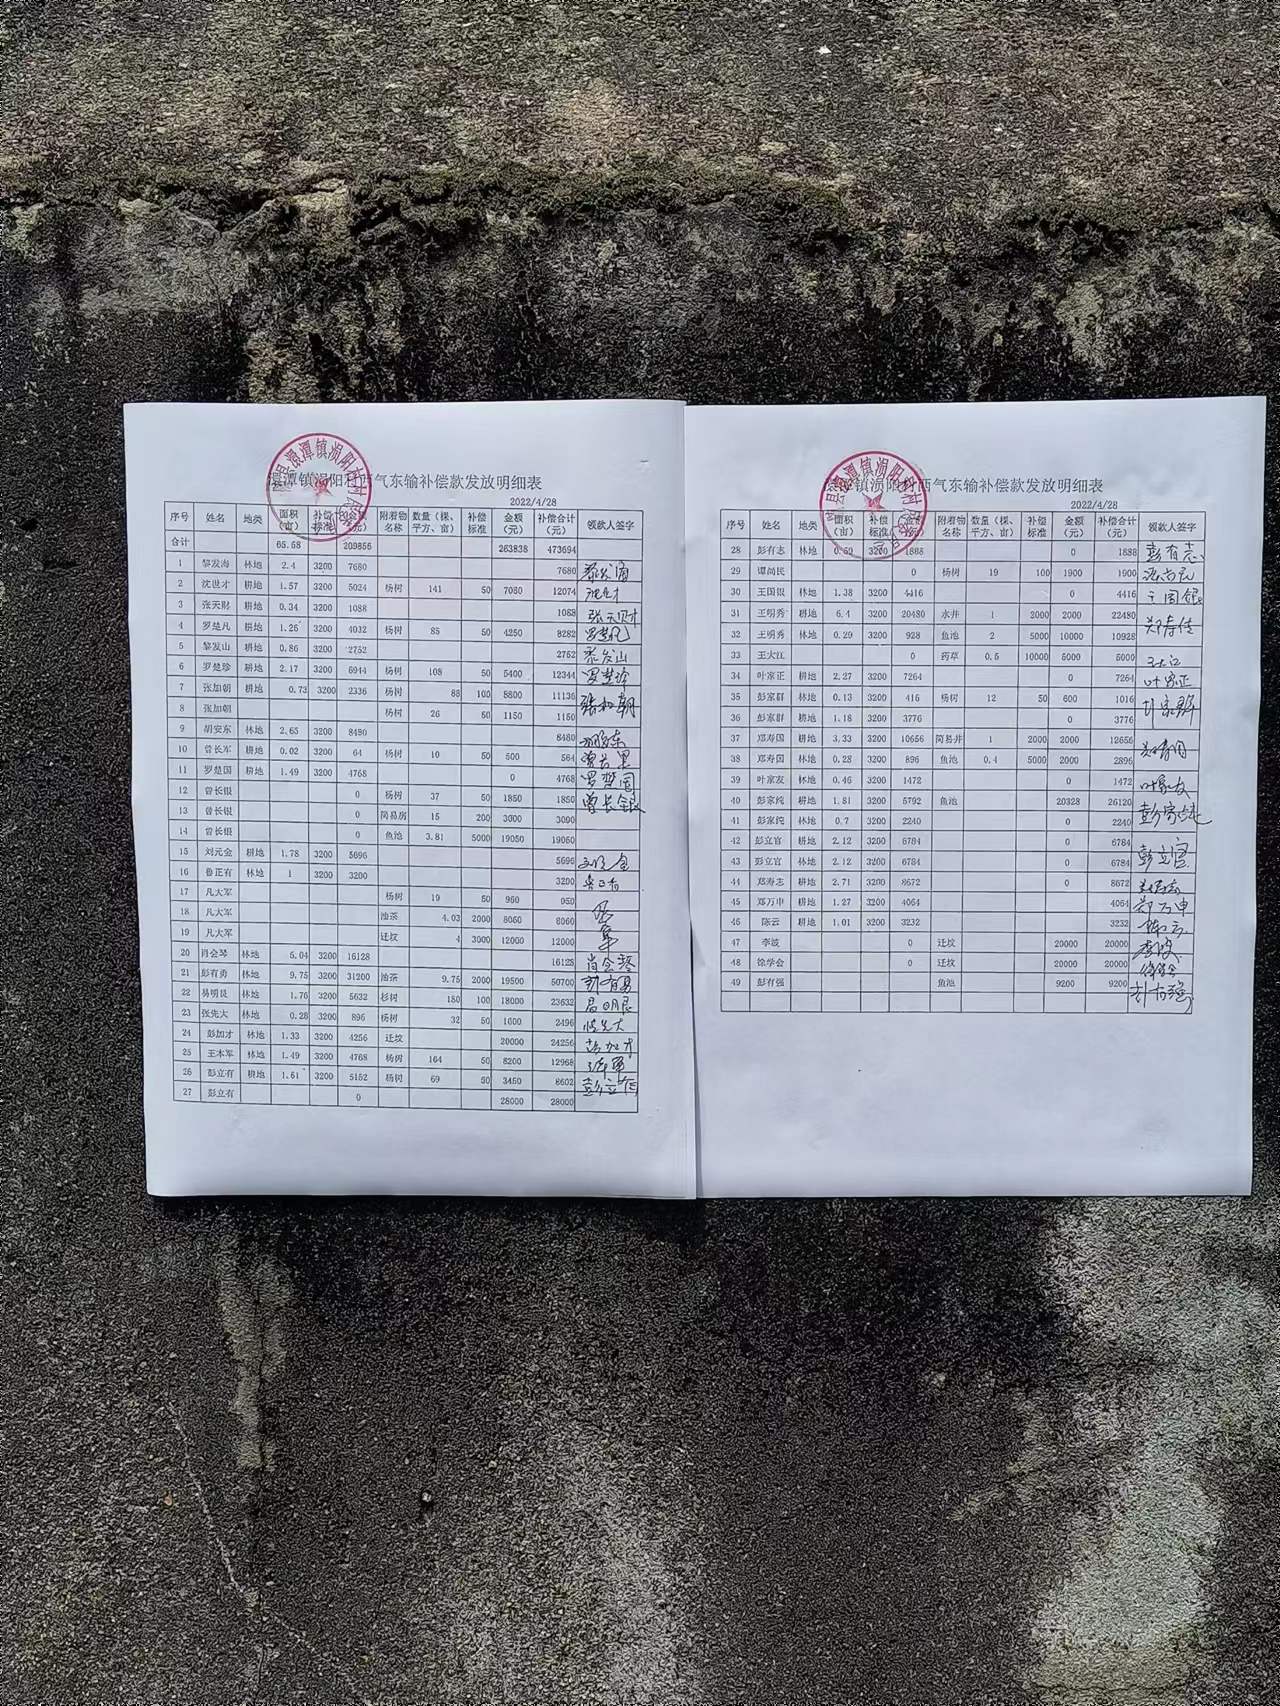 澴潭镇涢阳村西气东输补偿款发放明细表
2022/4/28
序号 姓名 地类 面积（亩） 补偿标准 金额（元） 附着物名称 数量（棵、平方、亩） 补偿标准 金额（元） 补偿合计（元） 领款人签字
合计 65.58 209856 263838 473694
1 黎发海 林地 2.4 3200 7680 7680
2 沈世才 耕地 1.57 3200 5024 杨树 141 50 7050 12074
3 张天财 耕地 0.34 3200 1088 1088 张天财
4 罗楚凡 耕地 1.26 3200 4032 杨树 85 50 4250 8282 罗楚凡
5 黎发山 耕地 0.86 3200 2752 2752 黎发山
6 罗楚珍 耕地 2.17 3200 6944 杨树 108 50 5400 12344 罗楚珍
7 张加朝 耕地 0.73 3200 2336 杨树 88 100 8800 11136 张加朝
8 张加朝 杨树 26 50 1150 1150
9 胡安东 林地 2.65 3200 8480 8480 胡安东
10 曾长军 耕地 0.02 3200 64 杨树 10 50 500 564
11 罗楚国 耕地 1.49 3200 4768 0 4768 罗楚国
12 曾长银 0 杨树 37 50 1850 1850 曾长银
13 曾长银 0 简易房 15 200 3000 3000
14 曾长银 0 鱼池 3.81 5000 19050 19050
15 刘元金 耕地 1.78 3200 5696 5696
16 鲁正有 林地 1 3200 3200 3200
17 凡大军 杨树 19 50 950 950
18 凡大军 油茶 4.03 2000 8060 8060
19 凡大军 迁坟 4 3000 12000 12000
20 肖会琴 林地 5.04 3200 16128 16128 肖会琴
21 彭有勇 林地 9.75 3200 31200 油茶 9.75 2000 19500 50700 彭有勇
22 易明良 林地 1.76 3200 5632 杉树 180 100 18000 23632
23 张先大 林地 0.28 3200 896 杨树 32 50 1600 2496 张先大
24 彭加才 林地 1.33 3200 4256 迁坟 20000 24256 彭加才
25 王本军 林地 1.49 3200 4768 杨树 164 50 8200 12968
26 彭立有 耕地 1.61 3200 5152 杨树 69 50 3450 8602 彭立有
27 彭立有 0 28000 28000
澴潭镇涢阳村西气东输补偿款发放明细表
2022/4/28
序号 姓名 地类 面积（亩） 补偿标准 金额（元） 附着物名称 数量（棵、平方、亩） 补偿标准 金额（元） 补偿合计（元） 领款人签字
28 彭有志 林地 0.59 3200 1888 0 1888 彭有志
29 谭尚民 0 杨树 19 100 1900 1900
30 王国银 林地 1.38 3200 4416 0 4416 王国银
31 王明秀 耕地 6.4 3200 20480 水井 1 2000 2000 22480
32 王明秀 林地 0.29 3200 928 鱼池 2 5000 10000 10928
33 王大江 0 药草 0.5 10000 5000 5000
34 叶家正 耕地 2.27 3200 7264 0 7264 叶家正
35 彭家群 林地 0.13 3200 416 杨树 12 50 600 1016
36 彭家群 耕地 1.18 3200 3776 0 3776
37 郑寿国 耕地 3.33 3200 10656 简易井 1 2000 2000 12656
38 郑寿国 林地 0.28 3200 896 鱼池 0.4 5000 2000 2896
39 叶家友 林地 0.46 3200 1472 0 1472 叶家友
40 彭家纯 耕地 1.81 3200 5792 鱼池 20328 26120 彭家纯
41 彭家纯 林地 0.7 3200 2240 0 2240
42 彭立官 耕地 2.12 3200 6784 0 6784 彭立官
43 彭立官 林地 2.12 3200 6784 0 6784
44 郑寿志 耕地 2.71 3200 8672 0 8672
45 郑万申 耕地 1.27 3200 4064 4064 郑万申
46 陈云 耕地 1.01 3200 3232 3232 陈云
47 李波 0 迁坟 20000 20000 李波
48 徐学会 0 迁坟 20000 20000 徐学会
49 彭有强 鱼池 9200 9200 彭有强